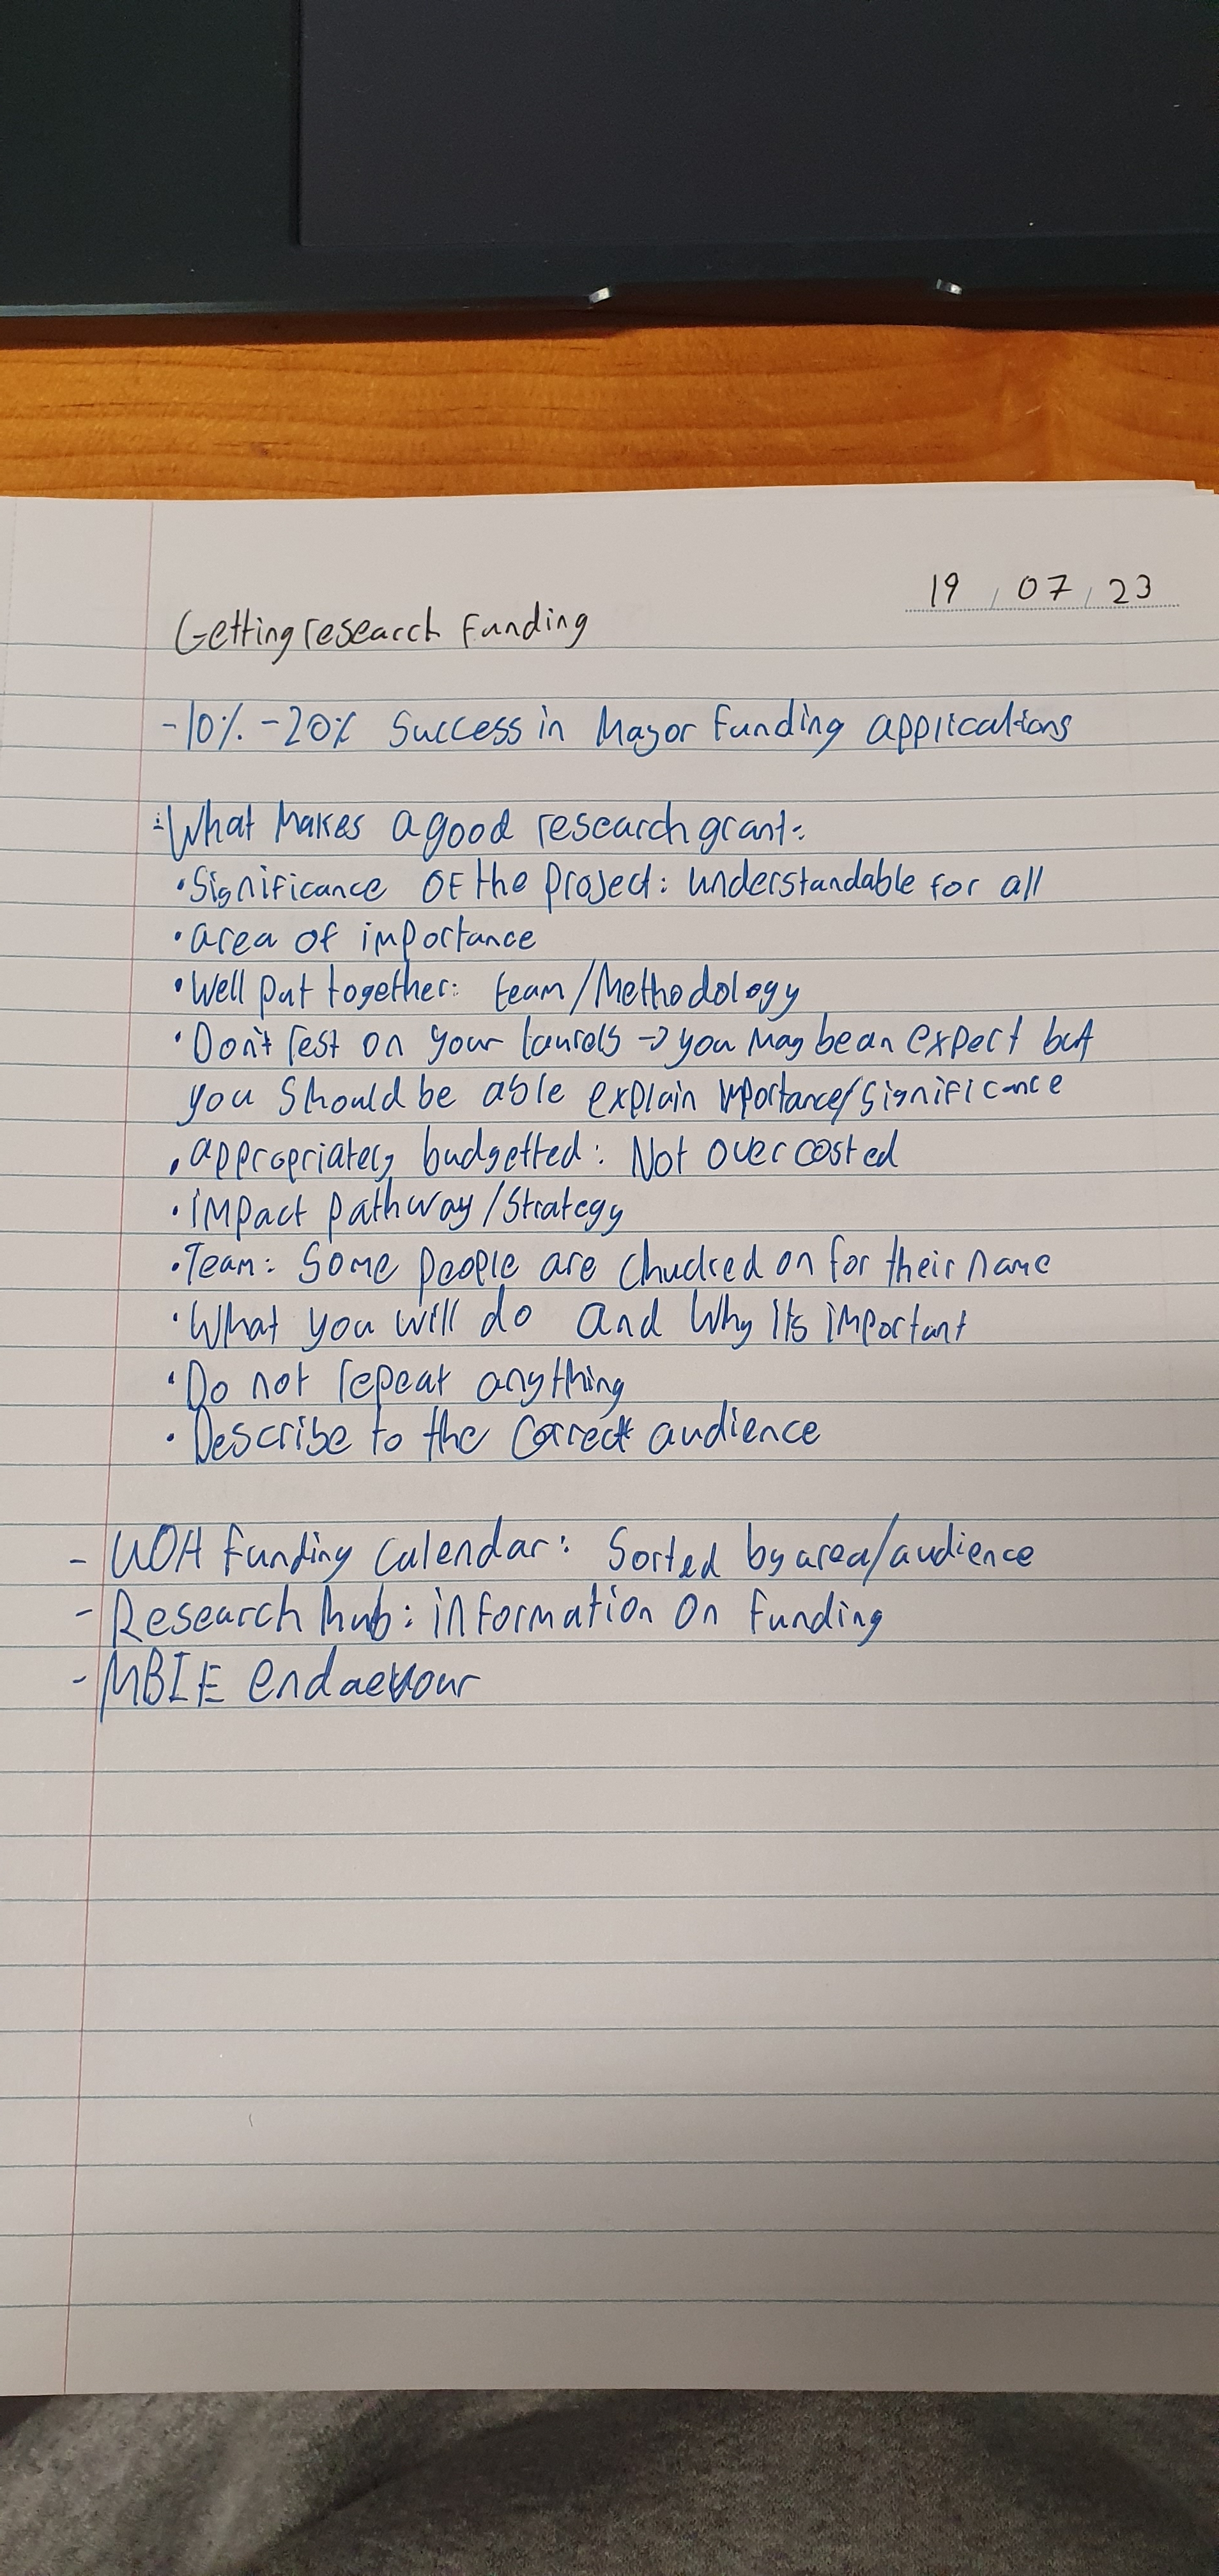 19 / 07 / 23
Getting research funding
-10% -20% Success in Major funding applications
What Makes a good research grant:
• Significance OF the project: understandable for all
• area of importance
• Well put together: team/Methodology
• Don't rest on your laurels → you may be an expert but
you should be able explain importance/significance
• appropriately budgetted: Not over costed
• impact pathway/strategy
• Team: Some people are chucked on for their name
• What you will do and Why its important
• Do not repeat anything
• Describe to the correct audience
- UOA funding calendar: Sorted by area/audience
- Research hub: information on funding
- MBIE endaevour